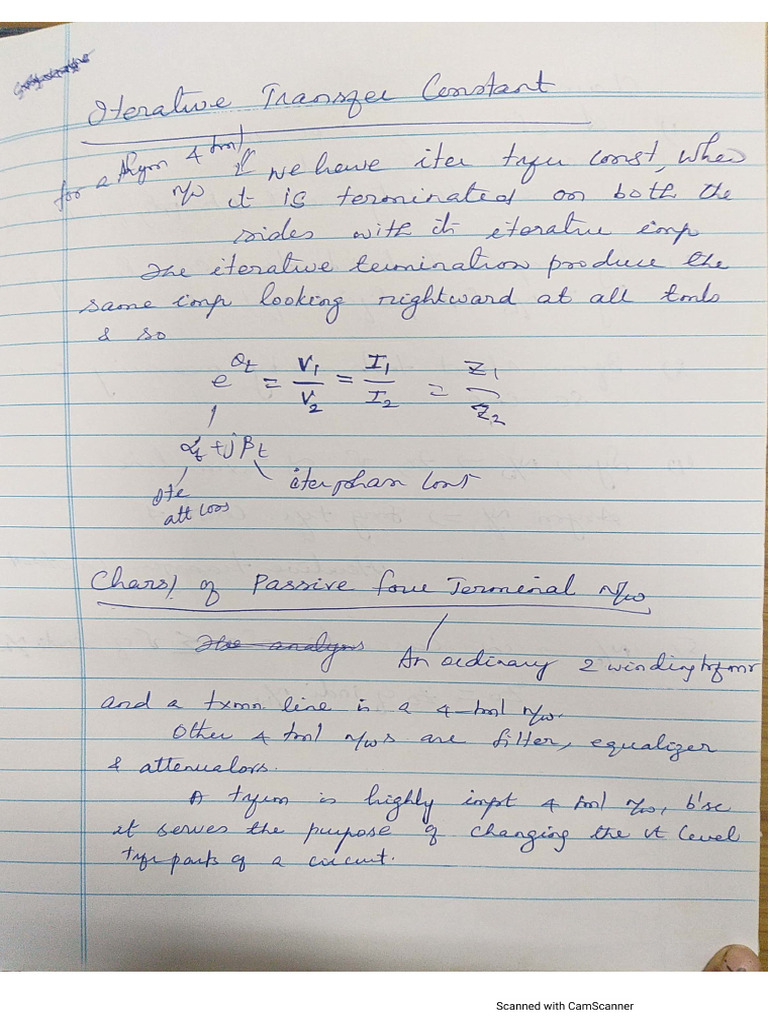 Iterative Transfer Constant
for a Asym 4 tml n/w
we have iter tsfer const, when
it is terminated on both the
sides with its iterative imp
The iterative termination produce the
same imp looking rightward at all tmls
& so
e^θt = V1/V2 = I1/I2 = Z1/Z2
αt + jβt
Ite att cons
iter phase const
Chars) of Passive four Terminal N/w
The analysis
An ordinary 2 winding
and a txmn line is a 4-tml n/w.
Other 4 tml n/ws are filter, equalizer
& attenuators.
A is highly impt 4 tml n/w, b'se
it serves the purpose of changing the vt level
parts of a circuit.
Scanned with CamScanner